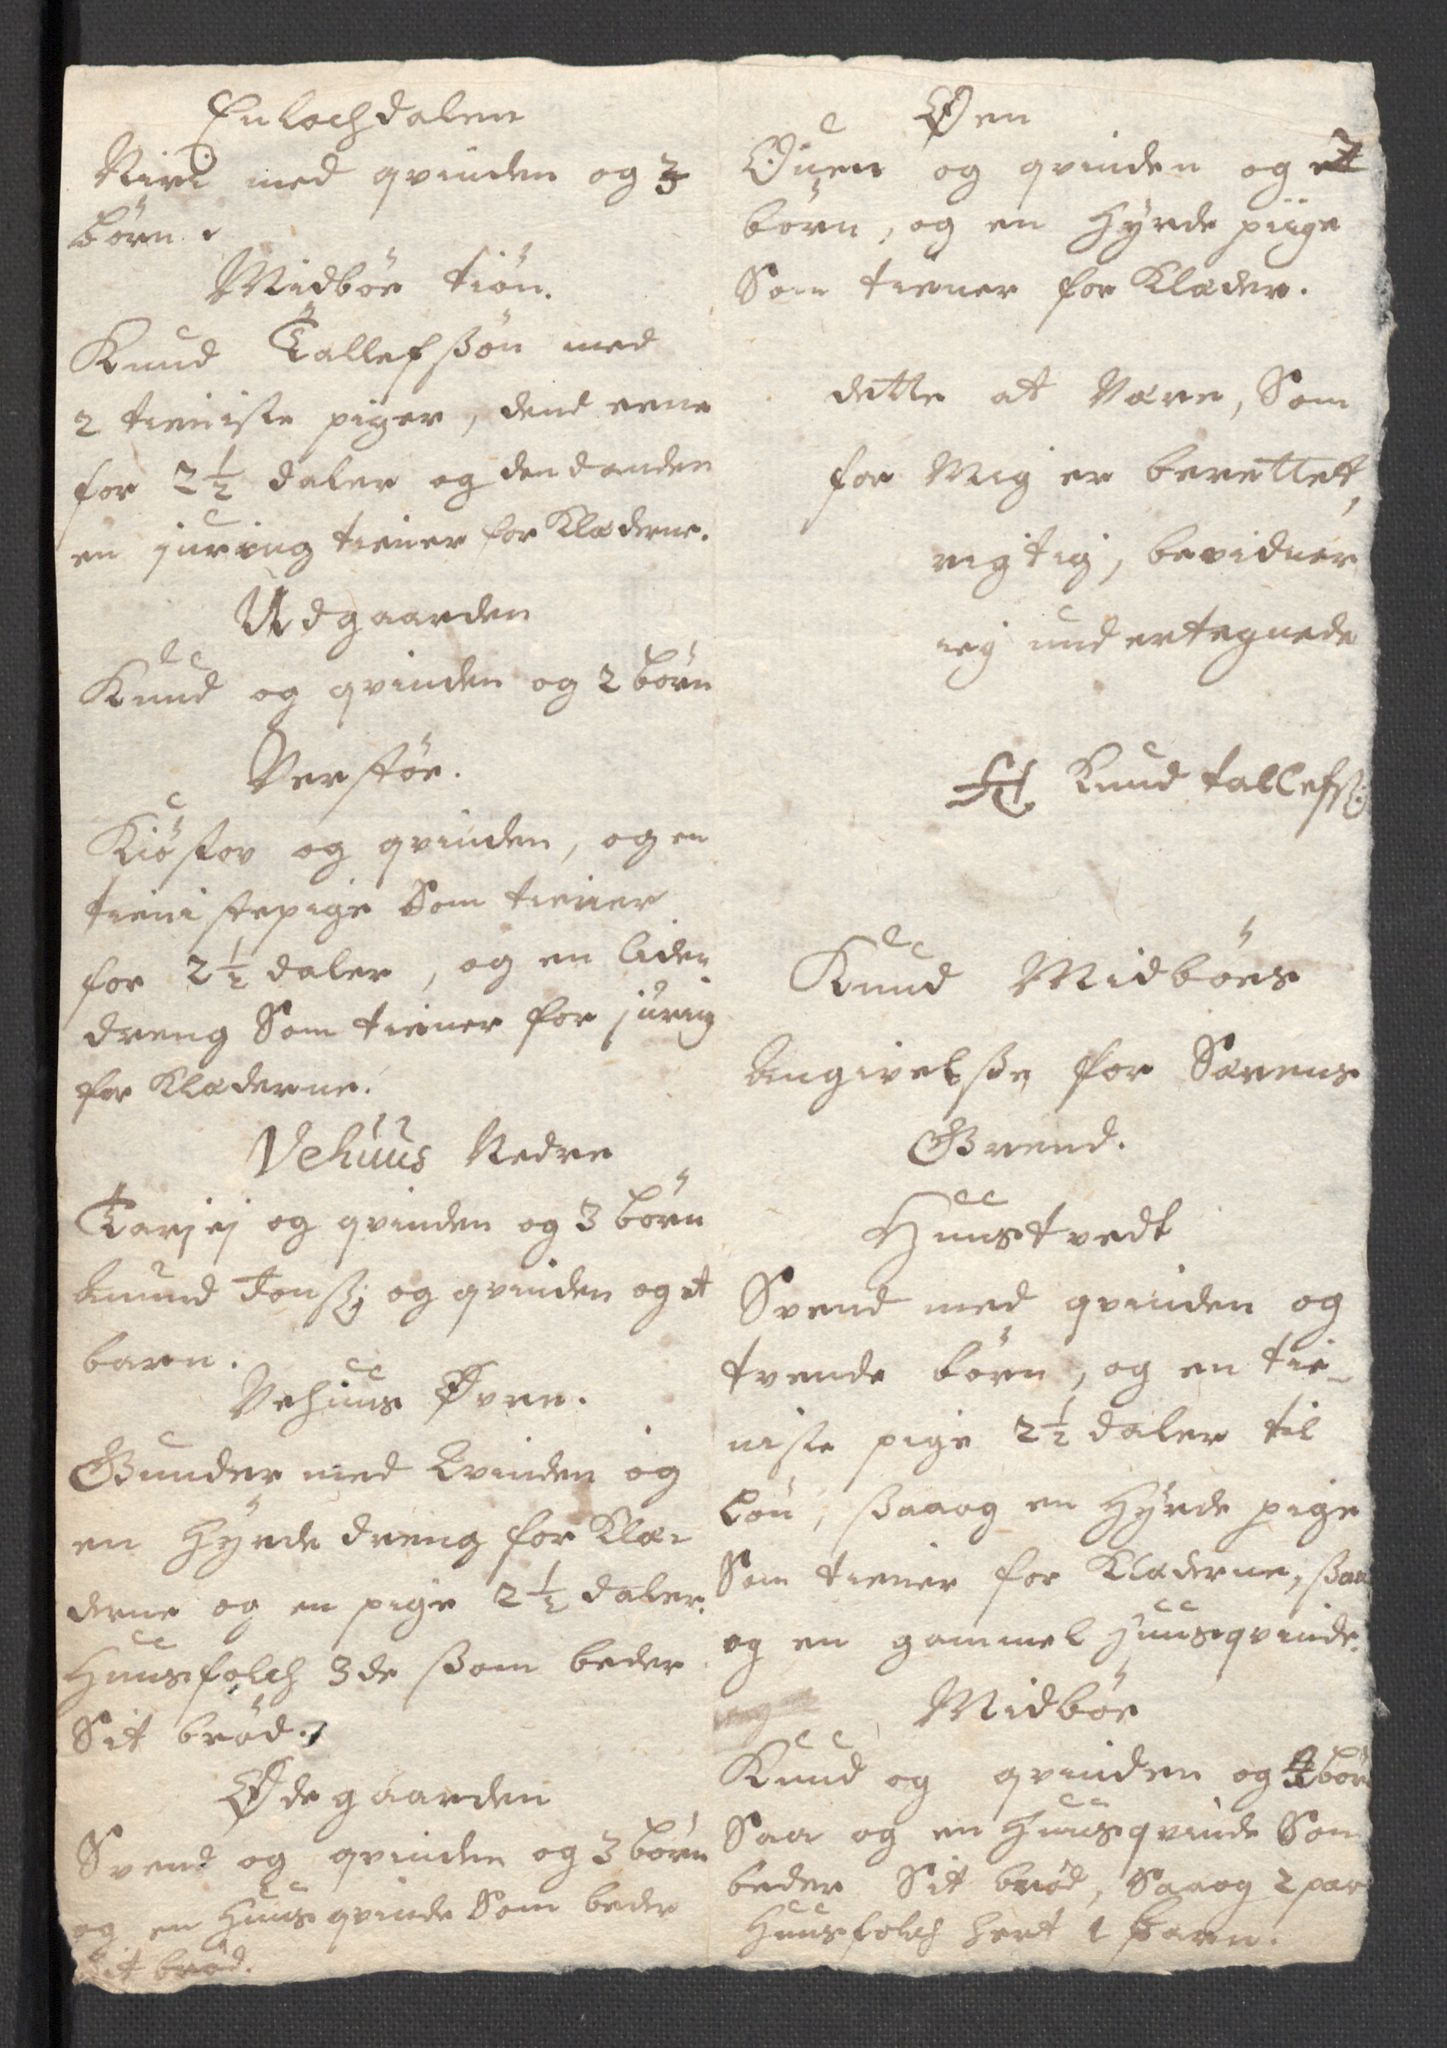 Enlochdalen
Niri med qvinden og 3
börn.
Midböe tiön.
Knud Tallefßön med
2 tieniste piger, dend eene
for 2½ daler og den danden
en juring tiener for Klæderne.
Udgaarden
Knud og qvinden og 2 börn
Verstöe.
Kiöstov og qvinden, og en
tienistepige Som tiener
for 2½ daler, og en liden
dreng Som tiener for juring
for Klæderne.
Vehuus Nedre
Tarjej og qvinden og 3 börn
Amund Jonß: og qvinden og et
barn.
Vehuus Øvre.
Gunder med Qvinden og
en Hyrde dreng for Klæ-
derne og en pige 2½ daler.
Huusfolch 3de ßom beder
Sit bröd.
Ødegaarden
Svend og qvinden og 3 börn
og en Huusqvinde Som beder
Sit bröd.
Øen
Ouen og qvinden og
börn, og en Hyrde piige
Som tiener for Klæder.
dette at Være, Som
for Mig er berettet,
rigtig, bevidner
ieg undertegnede
Knud tallefß:
Knud Midböes
Angivelße for Sævens
Grend.
Huustvedt
Svend med qvinden og
tvende börn, og en tie-
niste pige 2½ daler til
Lön, ßaaog en Hyrde pige
Som tiener for Klæderne, ßaa
og en gammel Huusqvinde.
Midböe
Knud og qvinden og börn
Saa og en Huusqvinde Som
beder Sit bröd, Saaog 2 par
Huusfolch hert 1 barn.